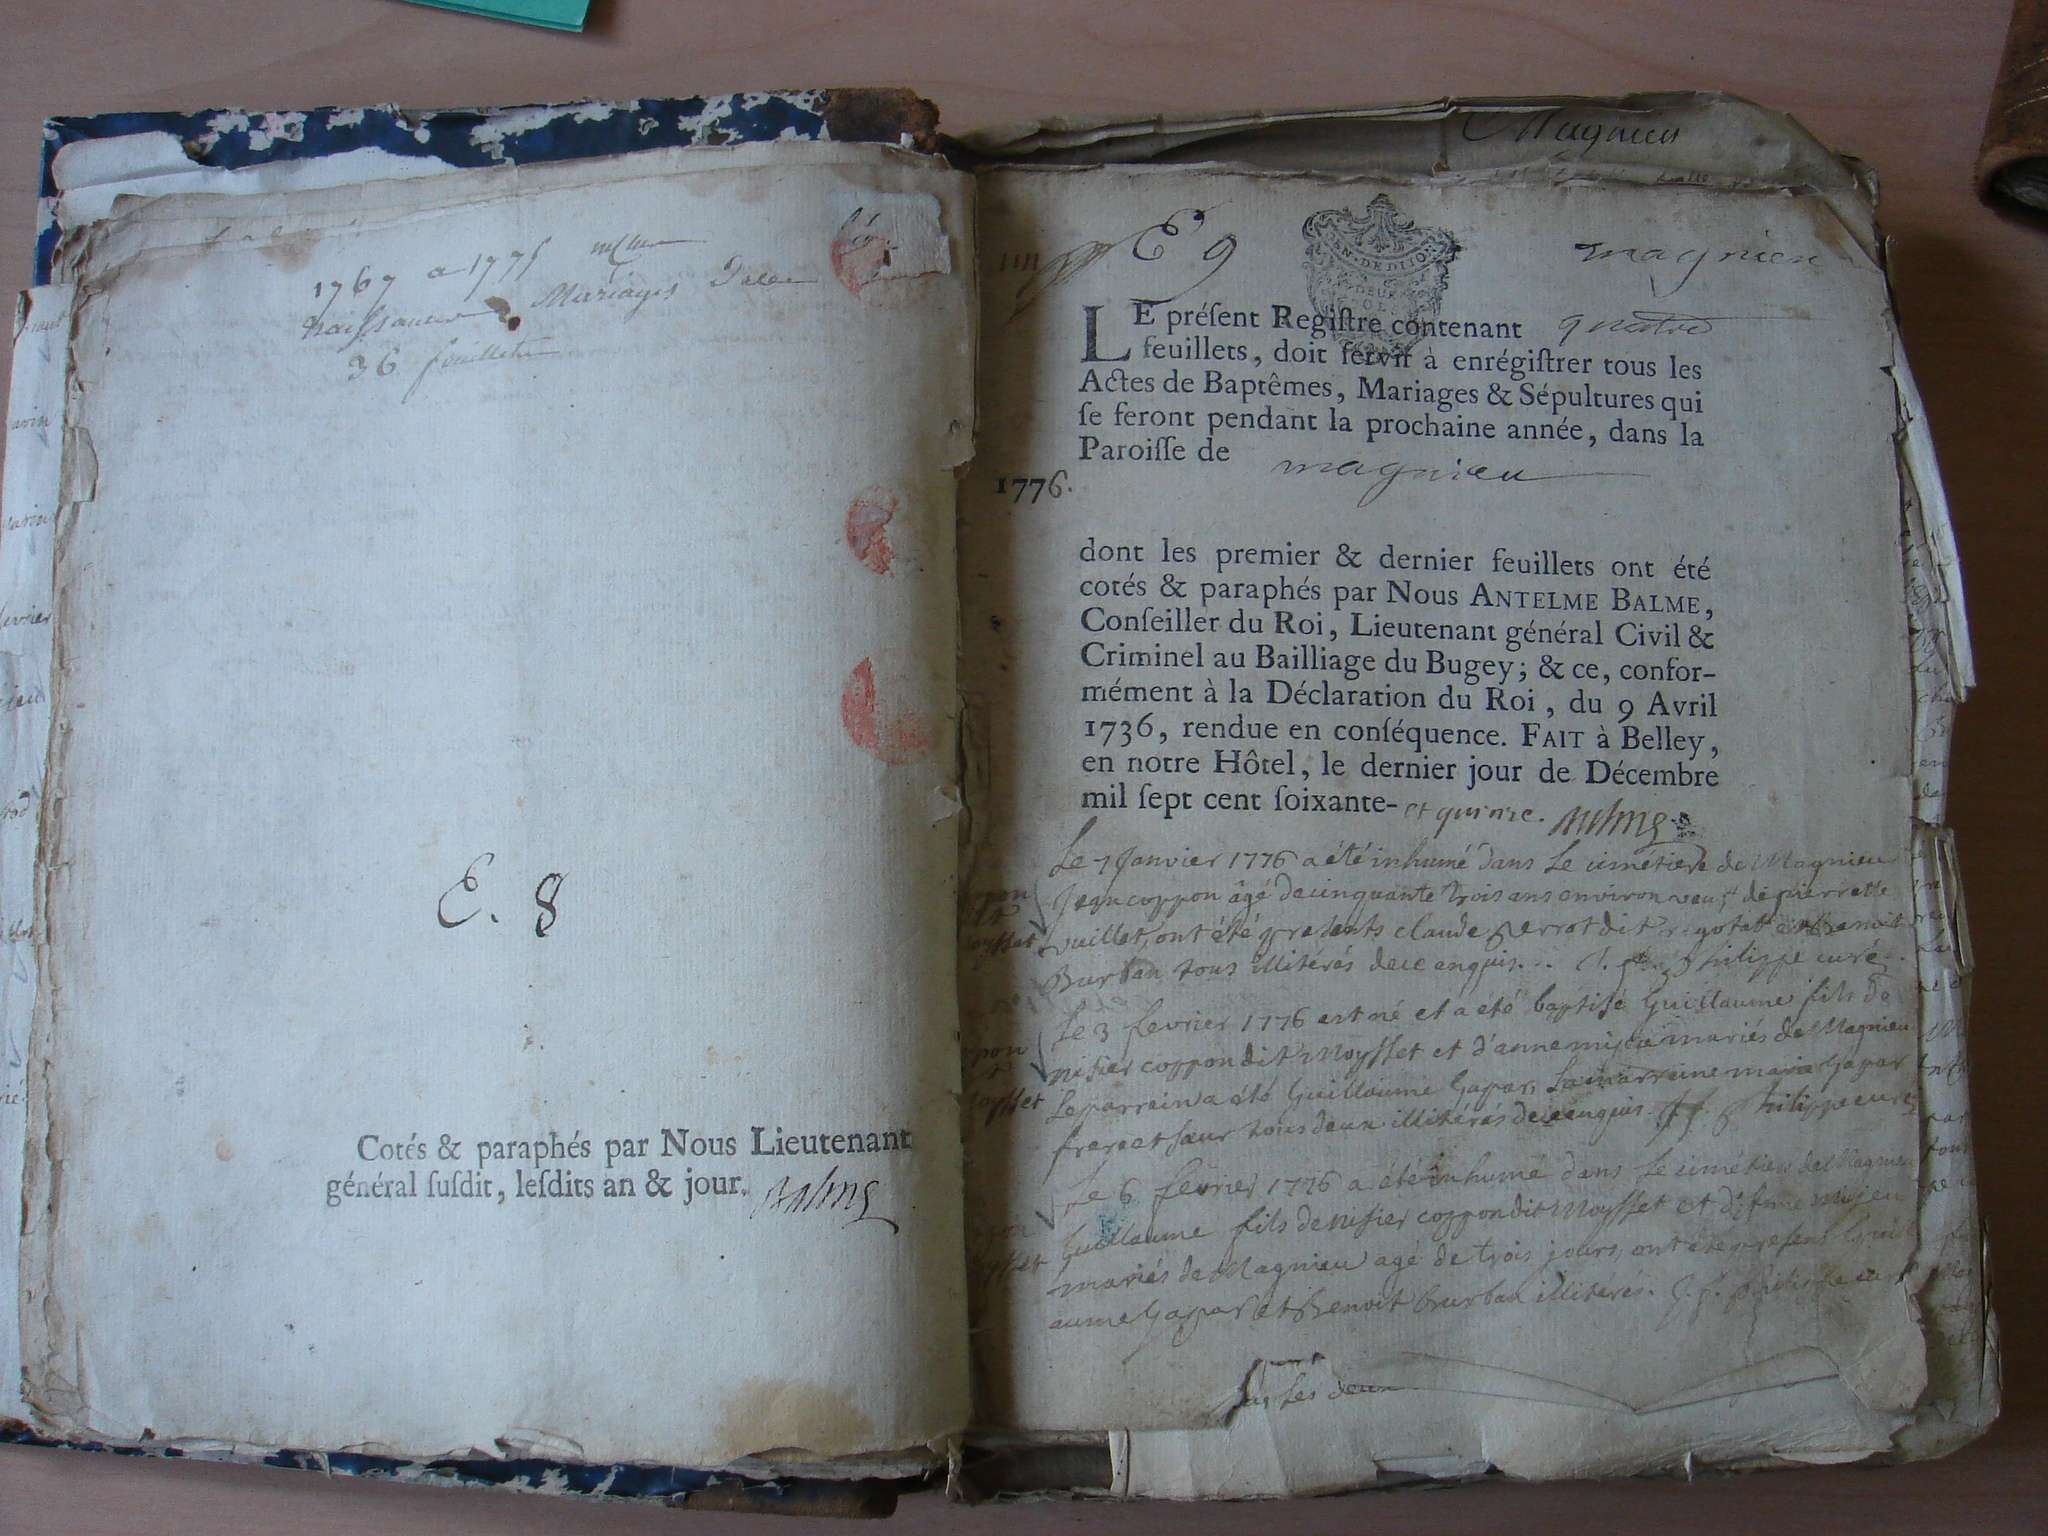 1767 a 1775
naissances Mariages
36 feuillets
E. 8
Cotés & paraphés par Nous Lieutenant
général ſuſdit, leſdits an & jour. Balme
Magnieu
E 9
magnieu
GEN. DE DIJON
LE préſent Regiſtre contenant quatre
feuillets, doit ſervir à enrégiſtrer tous les
Actes de Baptêmes, Mariages & Sépultures qui
ſe feront pendant la prochaine année, dans la
Paroiſſe de magnieu
1776.
dont les premier & dernier feuillets ont été
cotés & paraphés par Nous ANTELME BALME,
Conſeiller du Roi, Lieutenant général Civil &
Criminel au Bailliage du Bugey; & ce, confor-
mément à la Déclaration du Roi, du 9 Avril
1736, rendue en conſéquence. FAIT à Belley,
en notre Hôtel, le dernier jour de Décembre
mil ſept cent ſoixante- et quinze. Balme
Le 7 Janvier 1776 a été inhumé dans le cimétiere de Magnieu
Jean coppon âgé de cinquante trois ans environ veuf de pierrette
vuillet, ont été presents claude perrot dit et Benoit
Burban tous illitérés de ce enquis. philippe curé
Le 3 fevrier 1776 est né et a été baptisé Guillaume fils de
nisier coppon dit Moysset et d'anne mariés de Magnieu
Le parrein a été Guillaume Gapar, La marreine marie Gapar
frere et sœur tous deux illitérés de ce enquis. J. f. philippe curé
Le 6 fevrier 1776 a été inhumé dans le cimétiere de Magnieu
Guillaume fils de nisier coppon dit Moysset et d'anne mujeu
mariés de Magnieu agé de trois jours, ont été presens Guill
aume Gapar et Benoit Burban illitérés. J. f. philippe curé
Les deux